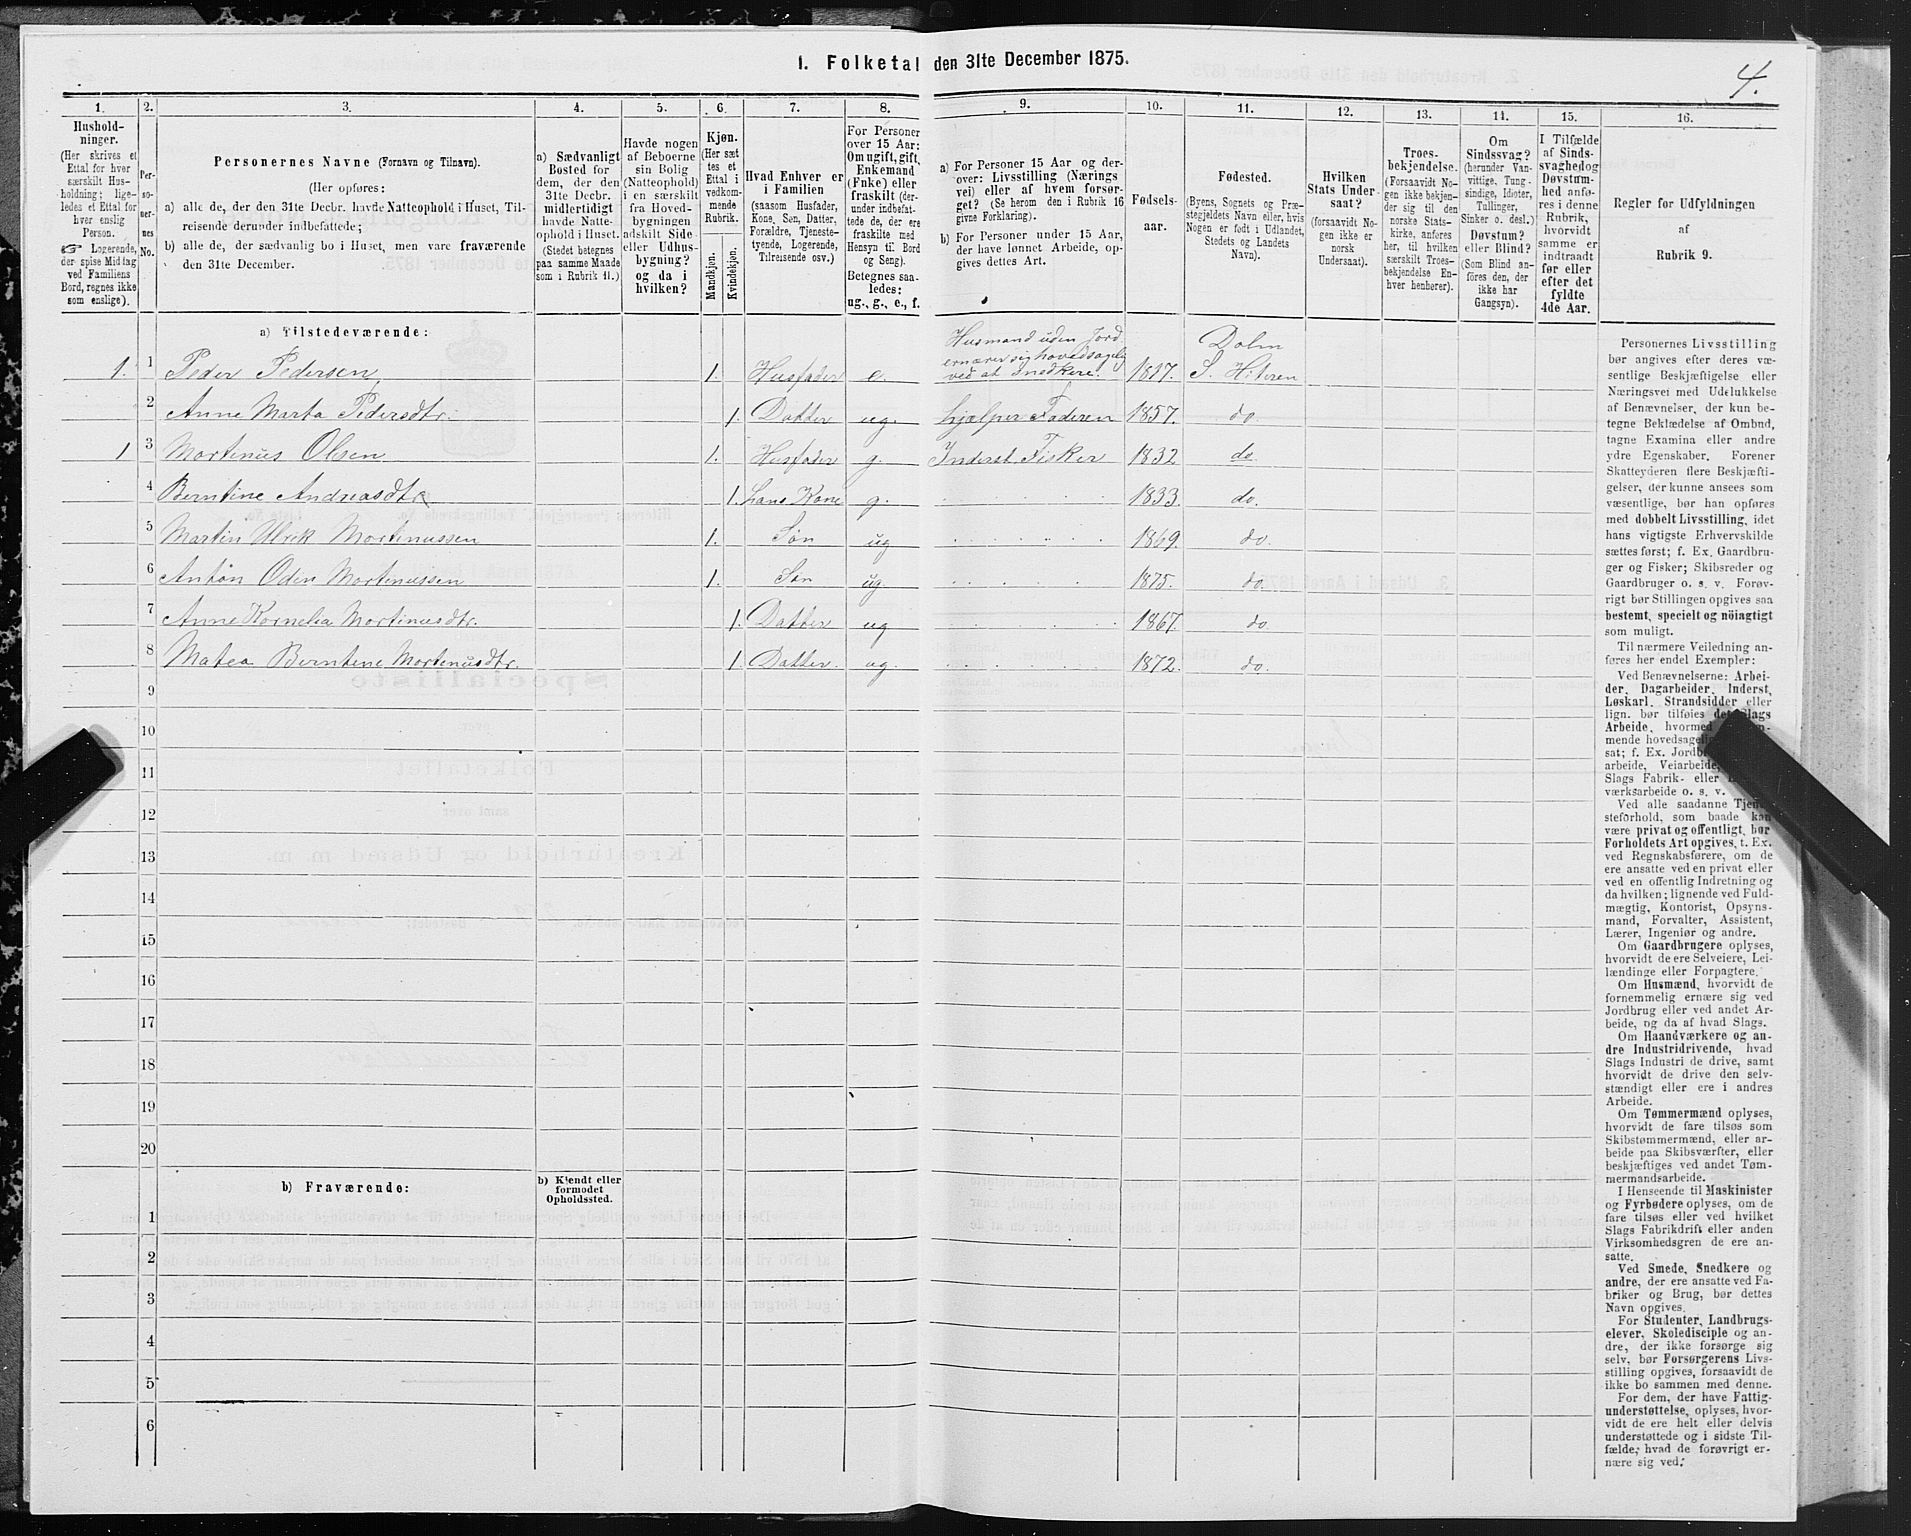 1. Folketal den 31te December 1875.
4.
1. 2. 3. 4. 5. 6. 7. 8. 9. 10. 11. 12. 13. 14. 15. 16.
Hushold-
ninger.
(Her skrives et
Ettal for hver
særskilt Hus-
holdning; lige-
ledes et Ettal for
hver enslig
Person.
☞ Logerende,
der spise Middag
ved Familiens
Bord, regnes ikke
som enslige).
Per-
so-
ner-
nes
No.
Personernes Navne (Fornavn og Tilnavn).
(Her opføres:
a) alle de, der den 31te Decbr. havde Natteophold i Huset, Til-
reisende derunder indbefattede;
b) alle de, der sædvanlig bo i Huset, men vare fraværende
den 31te December.
a) Sædvanligt
Bosted for
dem, der den
31te Decbr.
midlertidigt
havde Natte-
ophold i Huset.
(Stedet betegnes
paa samme Maade
som i Rubrik 11.)
Havde nogen
af Beboerne
sin Bolig
(Natteophold)
i en særskilt
fra Hoved-
bygningen
adskilt Side-
eller Udhus-
bygning?
og da i
hvilken?
Kjøn.
(Her sæt
tes et
Ettal i
vedkom-
mende
Rubrik.
Mandkjøn.
Kvindekjøn.
Hvad Enhver er
i Familien
(saasom Husfader,
Kone, Søn, Datter,
Forældre, Tjeneste-
tyende, Logerende,
Tilreisende osv.)
For Personer
over 15 Aar:
Om ugift, gift,
Enkemand
(Enke) eller
fraskilt (der-
under indbefat-
tede de, der ere
fraskilte med
Hensyn til Bord
og Seng).
Betegnes saa-
ledes:
ug., g., e., f.
a) For Personer 15 Aar og der-
over: Livsstilling (Nærings
vei) eller af hvem forsør-
get? (Se herom den i Rubrik 16
givne Forklaring).
b) For Personer under 15 Aar,
der have lønnet Arbeide, op-
gives dettes Art.
Fødsels-
aar.
Fødested.
(Byens, Sognets og Præ-
stegjeldets Navn eller, hvis
Nogen er født i Udlandet,
Stedets og Landets
Navn).
Hvilken
Stats Under-
saat?
(forsaavidt No-
gen ikke er
norsk
Undersaat).
Troes-
bekjendelse.
(Forsaavidt No-
gen ikke bekjen-
der sig til den
norske Stats-
kirke, anføres
her, til hvilken
særskilt Troes-
bekjendelse En-
hver henhører).
Om
Sindssvag?
(herunder Van-
vittige, Tung-
sindige, Idioter,
Tullinger,
Sinker o. desl.)
Døvstum?
eller Blind?
(Som Blind an-
føres den, der
ikke har
Gangsyn).
I Tilfælde
af Sinds-
svaghed og
Døvstum-
hed anfø-
res i denne
Rubrik,
hvorvidt
samme er
indtraadt
før eller
efter det
fyldte
4de Aar.
Regler for Udfyldningen
af
Rubrik 9.
a) Tilstedeværende:
Husmand uden Jord
ernærer sig hovedsagelig
ved at Snedkere.
Dolm
1. 1 Peder Pedersen 1. Husfader e. 1817. S. Hiteren
2 Anne Marta Pedersdtr. 1. Datter ug. hjælper Faderen 1857. do.
1 3 Mortinus Olsen 1. Husfader g. Inderst. Fisker 1832 do.
4 Berntine Andreasdtr. 1. hans Kone g. 1833. do.
5 Martin Ulrik Mortinussen 1. Søn ug 1869. do.
6 Anton Odin Mortinussen 1. Søn ug. 1875. do.
7 Anne Kornelia Mortinusdtr. 1. Datter ug 1867. do
8 Matea Berntine Mortenusdtr. 1. Datter. ug. 1872. do.
9
10
11
12
13
14
15
16
17
18
19
20
b) Fraværende:
b) Kjendt eller
formodet
Opholdssted.
1
2
3
4
5
6
Personernes Livsstilling
bør angives efter deres væ-
sentlige Beskjæftigelse eller
Næringsvei med Udelukkelse
af Benævnelser, der kun be-
tegne Beklædelse af Ombud,
tagne Examina eller andre
ydre Egenskaber. Forener
Skatteyderen flere Beskjæfti-
gelser, der kunne ansees som
væsentlige, bør han opføres
med dobbelt Livsstilling, idet
hans vigtigste Erhvervskilde
sættes først; f. Ex. Gaardbru-
ger og Fisker; Skibsreder og
Gaardbruger o. s. v. Forøv-
rigt bør Stillingen opgives saa
bestemt, specielt og nöiagtigt
som muligt.
Til nærmere Veiledning an-
føres her endel Exempler:
Ved Benævnelserne: Arbei-
der, Dagarbeider, Inderst,
Løskarl, Strandsidder eller
lign. bør tilføies det Slags
Arbeide, hvormed
mende hovedsagelig
sat; f. Ex. Jordb
arbeide, Veiarbeide,
Slags Fabrik- eller
værksarbeide o. s. v.
Ved alle saadanne Tjene-
steforhold, som baade kan
være privat og offentligt, bør
Forholdets Art opgives, t. Ex.
ved Regnskabsførere, om de
ere ansatte ved en privat eller
ved en offentlig Indretning og
da hvilken; lignende ved Fuld-
mægtig, Kontorist, Opsyns-
mand, Forvalter, Assistent,
Lærer, Ingeniør og andre.
Om Gaardbrugere oplyses,
hvorvidt de ere Selveiere, Lei-
lændinge eller Forpagtere.
Om Husmænd, hvorvidt de
fornemmelig ernære sig ved
Jordbrug eller ved andet Ar-
beide, og da af hvad Slags.
Om Haandværkere og an-
dre Industridrivende, hvad
Slags Industri de drive, samt
hvorvidt de drive den selv-
stændigt eller ere i andres
Arbeide.
Om Tømmermænd oplyses,
hvorvidt de fare tilsøs som
Skibstømmermænd, eller ar-
beide paa Skibsværfter, eller
beskjæftiges ved andet Tøm-
mermandsarbeide.
I Henseende til Maskinister
og Fyrbødere oplyses, om de
fare tilsøs eller ved hvilket
Slags Fabrikdrift eller anden
Virksomhedsgren de ere an-
satte.
Ved Smede, Snedkere og
andre, der ere ansatte ved Fa-
briker og Brug, bør dettes
Navn opgives.
For Studenter, Landbrugs-
elever, Skoledisciple og an-
dre, der ikke forsørge sig
selv, bør Forsørgerens Livs-
stilling opgives, forsaavidt de
ikke bo sammen med denne.
For dem, der have Fattig-
understøttelse, oplyses, hvor-
vidt de ere helt eller delvis
understøttede og i sidste Til-
fælde, hvad de forøvrigt er-
nære sig ved.